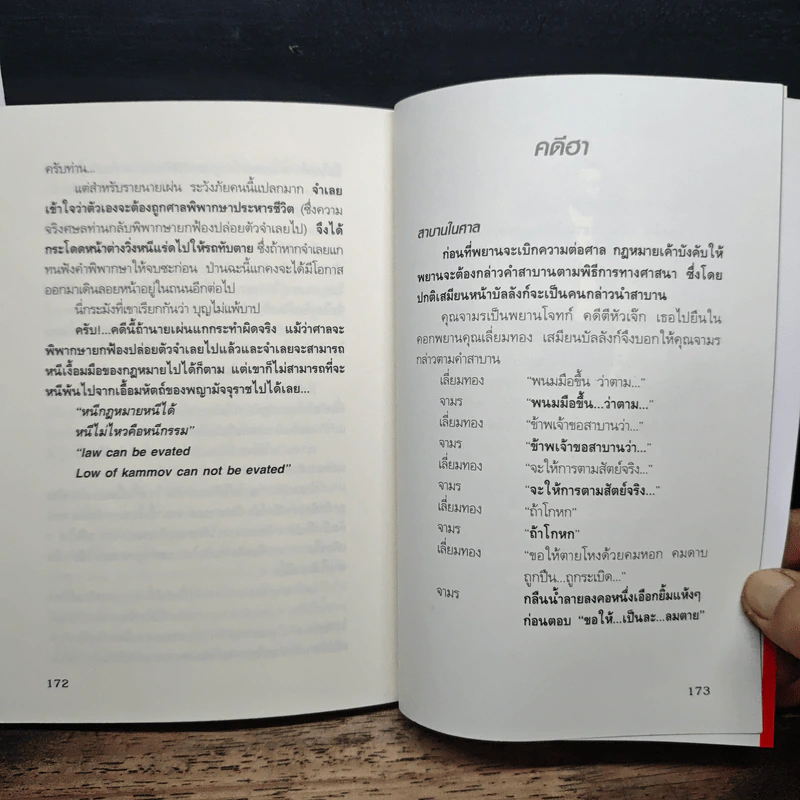 ครับท่าน...
แต่สำหรับรายนายเผ่น ระวังภัยคนนี้แปลกมาก จำเลย
เข้าใจว่าตัวเองจะต้องถูกศาลพิพากษาประหารชีวิต (ซึ่งความ
จริงศษลท่านกลับพิพากษายกฟ้องปล่อยตัวจำเลยไป) จึงได้
กระโดดหน้าต่างวิ่งหนีแร่ดไปให้รถทับตาย ซึ่งถ้าหากจำเลยแก
ทนฟังคำพิพากษาให้จบซะก่อน ป่านฉะนี้แกคงจะได้มีโอกาส
ออกมาเดินลอยหน้าอยู่ในถนนอีกต่อไป
นี่กระมังที่เขาเรียกกันว่า บุญไม่แพ้บาป
ครับ!...คดีนี้ถ้านายเผ่นแกกระทำผิดจริง แม้ว่าศาลจะ
พิพากษายกฟ้องปล่อยตัวจำเลยไปแล้วและจำเลยจะสามารถ
หนีเงื้อมมือของกฎหมายไปได้ก็ตาม แต่เขาก็ไม่สามารถที่จะ
หนีพ้นไปจากเอื้อมหัตถ์ของพญามัจจุราชไปได้เลย...
"หนีกฎหมายหนีได้
หนีไม่ไหวคือหนีกรรม"
"law can be evated
Low of kammov can not be evated"
172
คดีฮา
สาบานในศาล
ก่อนที่พยานจะเบิกความต่อศาล กฎหมายเค้าบังคับให้
พยานจะต้องกล่าวคำสาบานตามพิธีการทางศาสนา ซึ่งโดย
ปกติเสมียนหน้าบัลลังก์จะเป็นคนกล่าวนำสาบาน
คุณจามรเป็นพยานโจทก์ คดีตีหัวเจ๊ก เธอไปยืนใน
คอกพยานคุณเลี่ยมทอง เสมียนบัลลังก์จึงบอกให้คุณจามร
กล่าวตามคำสาบาน
เลี่ยมทอง "พนมมือขึ้น ว่าตาม..."
จามร "พนมมือขึ้น...ว่าตาม..."
เลี่ยมทอง "ข้าพเจ้าขอสาบานว่า..."
จามร "ข้าพเจ้าขอสาบานว่า..."
เลี่ยมทอง "จะให้การตามสัตย์จริง..."
จามร "จะให้การตามสัตย์จริง..."
เลี่ยมทอง "ถ้าโกหก"
จามร "ถ้าโกหก"
เลี่ยมทอง "ขอให้ตายโหงด้วยคมหอก คมดาบ
ถูกปืน...ถูกระเบิด..."
จามร กลืนน้ำลายลงคอหนึ่งเอือกยิ้มแห้งๆ
ก่อนตอบ "ขอให้...เป็นละ...ลมตาย"
173